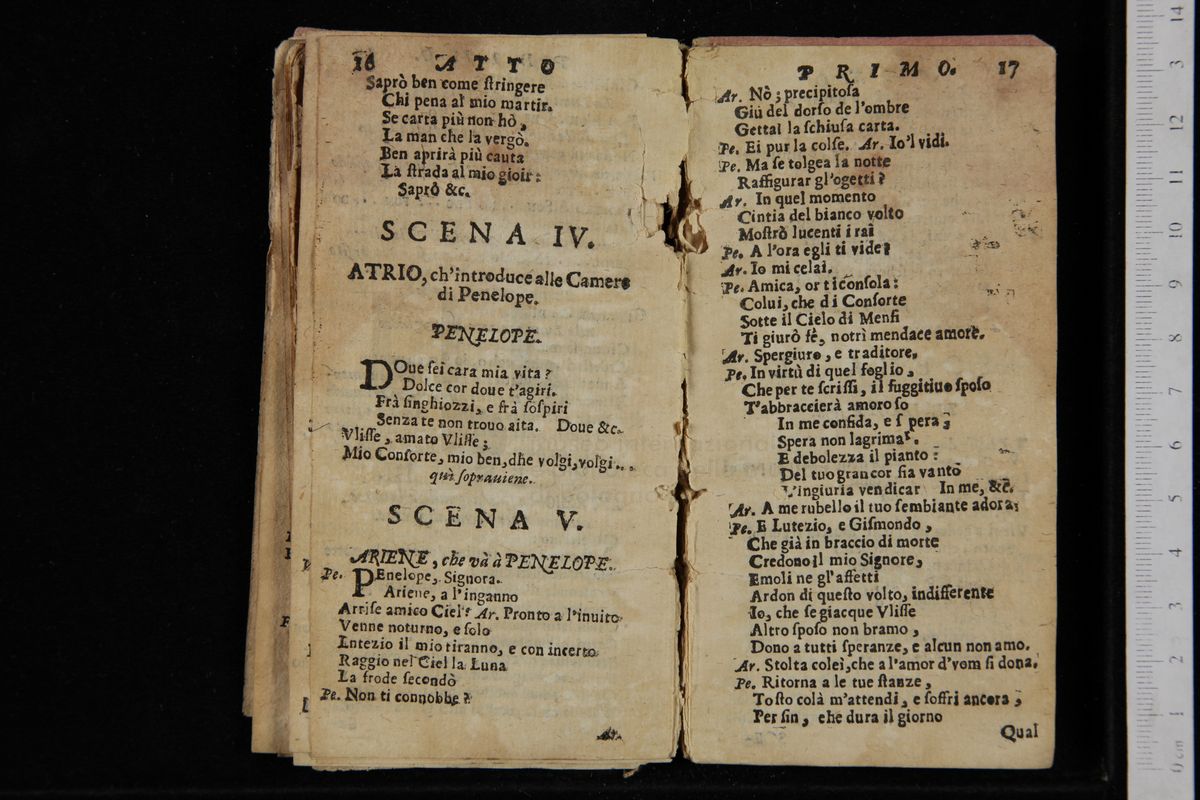 16 ATTO
Saprò ben come ſtringere
Chi pena al mio martir.
Se carta più non hò,
La man che la vergò.
Ben aprirà più cauta
La ſtrada al mio gioir:
Saprò &c.
SCENA IV.
ATRIO, ch'introduce alle Camere
di Penelope.
PENELOPE.
DOue ſei cara mia vita?
Dolce cor doue t'agiri.
Frà ſinghiozzi, e frà ſoſpiri
Senza te non trouo aita. Doue &c.
Vliſſe, amato Vliſſe;
Mio Conſorte, mio ben, dhe volgi, volgi...
quì ſoprauiene.
SCENA V.
ARIENE, che và à PENELOPE.
Pe. PEnelope, Signora.
Ariene, a l'inganno
Arriſe amico Ciel? Ar. Pronto a l'inuito
Venne noturno, e ſolo
Lutezio il mio tiranno, e con incerto
Raggio nel Ciel la Luna
La frode ſecondò
Pe. Non ti connobbe?
Ar.
PRIMO. 17
Ar. Nò; precipitoſa
Giù del dorſo de l'ombre
Gettai la ſchiuſa carta.
Pe. Ei pur la colſe. Ar. Io'l vidi.
Pe. Ma ſe tolgea la notte
Raffigurar gl'ogetti?
Ar. In quel momento
Cintia del bianco volto
Moſtrò lucenti i rai
Pe. A l'ora egli ti vide?
Ar. Io mi celai.
Pe. Amica, or ti conſola:
Colui, che di Conſorte
Sotte il Cielo di Menfi
Ti giurò fè, notrì mendace amore.
Ar. Spergiuro, e traditore.
Pe. In virtù di quel foglio,
Che per te ſcriſſi, il fuggitiuo ſpoſo
T'abbraccierà amoroſo
In me confida, e ſpera;
Spera non lagrimar.
E debolezza il pianto:
Del tuo gran cor ſia vanto
L'ingiuria vendicar In me, &c.
Ar. A me rubello il tuo ſembiante adora;
Pe. E Lutezio, e Giſmondo,
Che già in braccio di morte
Credono il mio Signore,
Emoli ne gl'affetti
Ardon di queſto volto, indifferente
Io, che ſe giacque Vliſſe
Altro ſpoſo non bramo,
Dono a tutti ſperanze, e alcun non amo.
Ar. Stolta colei, che a l'amor d'vom ſi dona.
Pe. Ritorna a le tue ſtanze,
Toſto colà m'attendi, e ſoffri ancora;
Per ſin, che dura il giorno
Qual